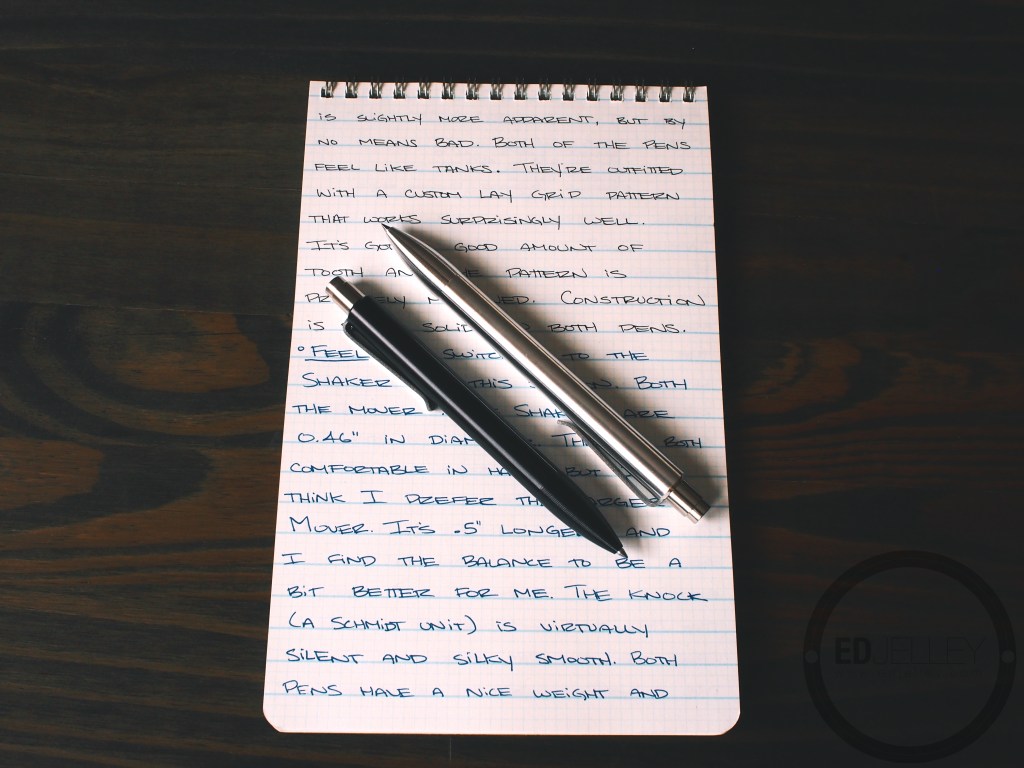 IS SLIGHTLY MORE APPARENT, BUT BY
NO MEANS BAD. BOTH OF THE PENS
FEEL LIKE TANKS. THEY'RE OUTFITTED
WITH A CUSTOM LAY GRID PATTERN
THAT WORKS SURPRISINGLY WELL.
IT'S GOOD AMOUNT OF
TOOTH PATTERN IS
CONSTRUCTION
IS SOLID BOTH PENS.
° FEEL TO THE
SHAKER THIS BOTH
THE MOVER ARE
0.46" IN BOTH
COMFORTABLE IN BUT
THINK I PREFER
MOVER. IT'S .5" LONGER AND
I FIND THE BALANCE TO BE A
BIT BETTER FOR ME. THE KNOCK
(A SCHMIDT UNIT) IS VIRTUALLY
SILENT AND SILKY SMOOTH. BOTH
PENS HAVE A NICE WEIGHT AND
ED JELLEY